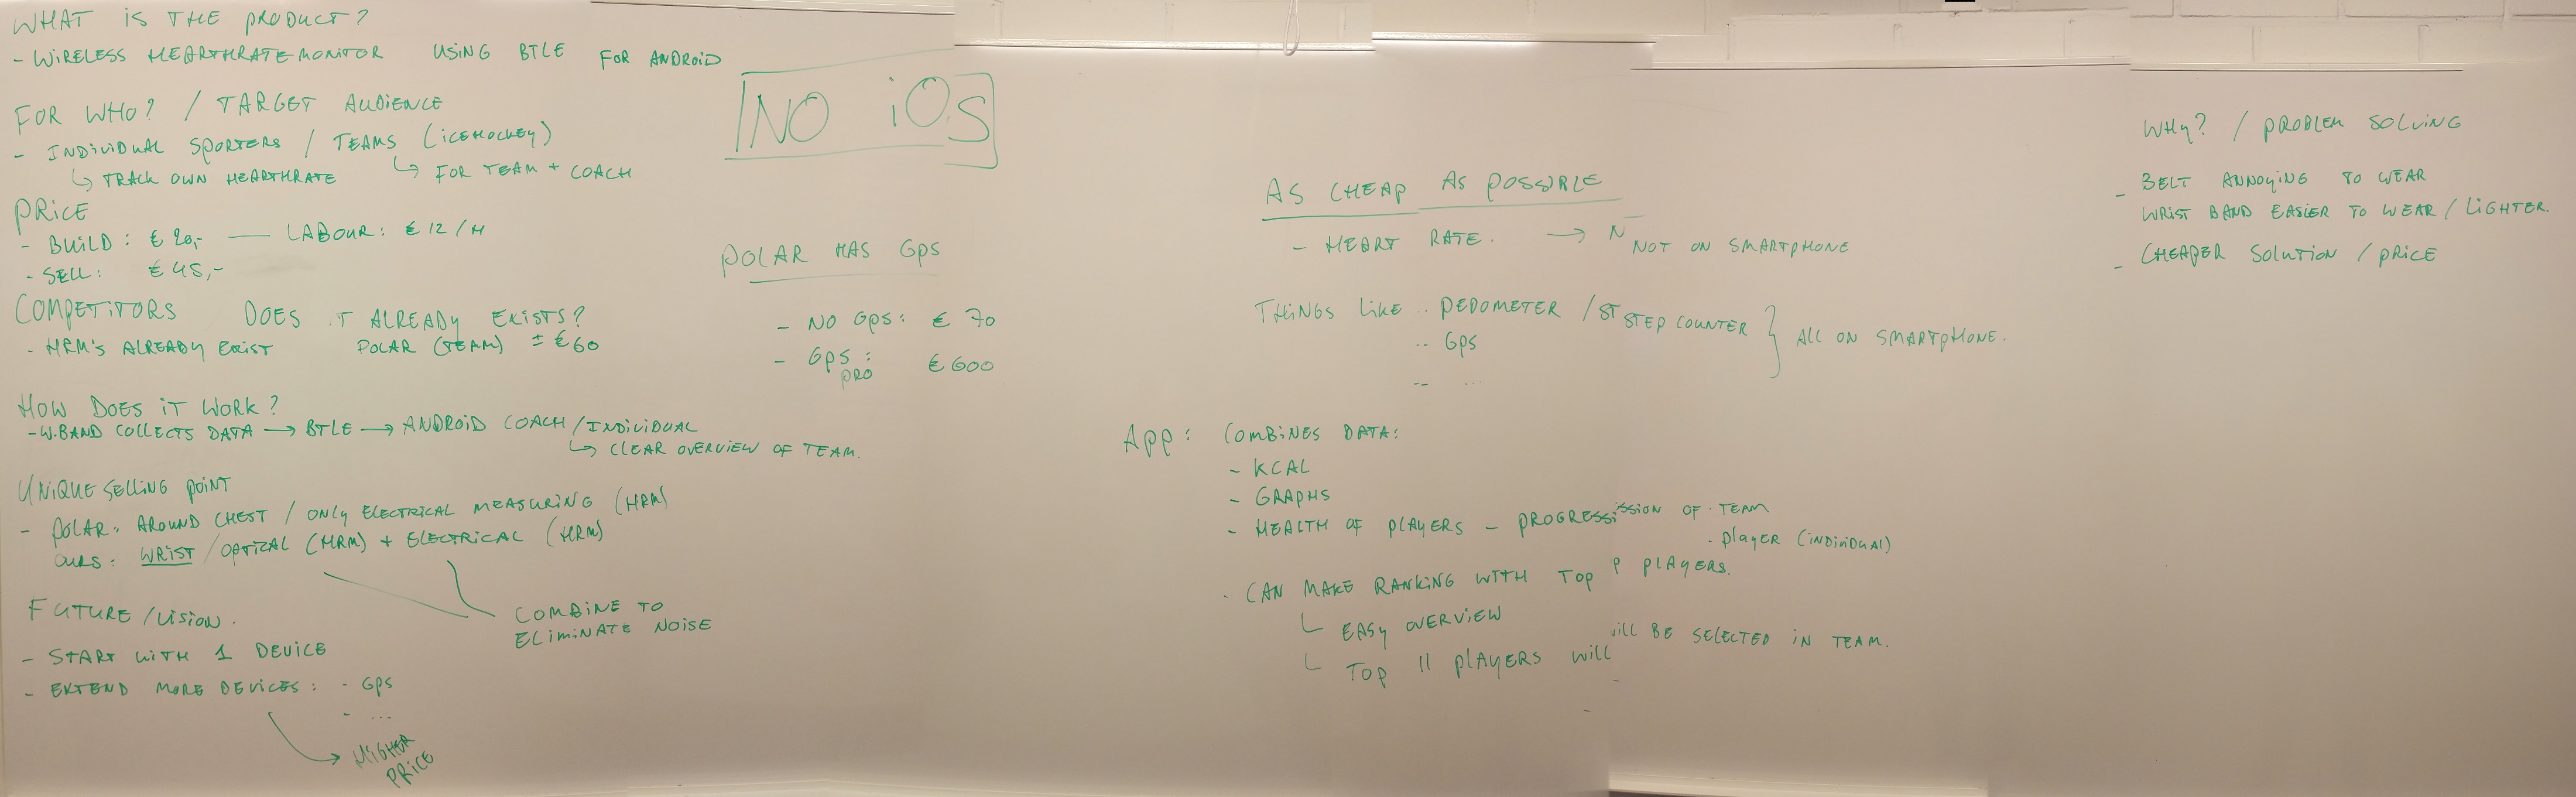 WHAT IS THE PRODUCT?
- WIRELESS HEARTHRATEMONITOR USING BTLE FOR ANDROID
FOR WHO? / TARGET AUDIENCE
- INDIVIDUAL SPORTERS / TEAMS (ICEHOCKEY)
↳ TRACK OWN HEARTHRATE ↳ FOR TEAM + COACH
PRICE
- BUILD: € 20,- — LABOUR: € 12/H
- SELL: € 45,-
COMPETITORS DOES IT ALREADY EXISTS?
- HRM'S ALREADY EXIST POLAR (TEAM) ± €60
HOW DOES IT WORK?
- W.BAND COLLECTS DATA → BTLE → ANDROID COACH/INDIVIDUAL
↳ CLEAR OVERVIEW OF TEAM.
UNIQUE SELLING POINT
- POLAR: AROUND CHEST / ONLY ELECTRICAL MEASURING (HRM)
OURS: WRIST / OPTICAL (HRM) + ELECTRICAL (HRM)
COMBINE TO
ELIMINATE NOISE
FUTURE/VISION.
- START WITH 1 DEVICE
- EXTEND MORE DEVICES: - GPS
- ...
→ HIGHER
PRICE
NO iOS
POLAR HAS GPS
- NO GPS: € 70
- GPS: € 600
PRO
AS CHEAP AS POSSIBLE
- HEART RATE. → N NOT ON SMARTPHONE
THINGS LIKE -- PEDOMETER / ST STEP COUNTER
-- GPS
-- ...
} ALL ON SMARTPHONE.
App: COMBINES DATA:
- KCAL
- GRAPHS
- HEALTH OF PLAYERS - PROGRESSISSION OF · TEAM
· PLAYER (INDIVIDUAL)
· CAN MAKE RANKING WITH TOP P PLAYERS.
└ EASY OVERVIEW
└ TOP 11 PLAYERS WILL ILL BE SELECTED IN TEAM.
WHY? / PROBLEM SOLVING
- BELT ANNOYING TO WEAR
WRIST BAND EASIER TO WEAR / LIGHTER.
- CHEAPER SOLUTION / PRICE